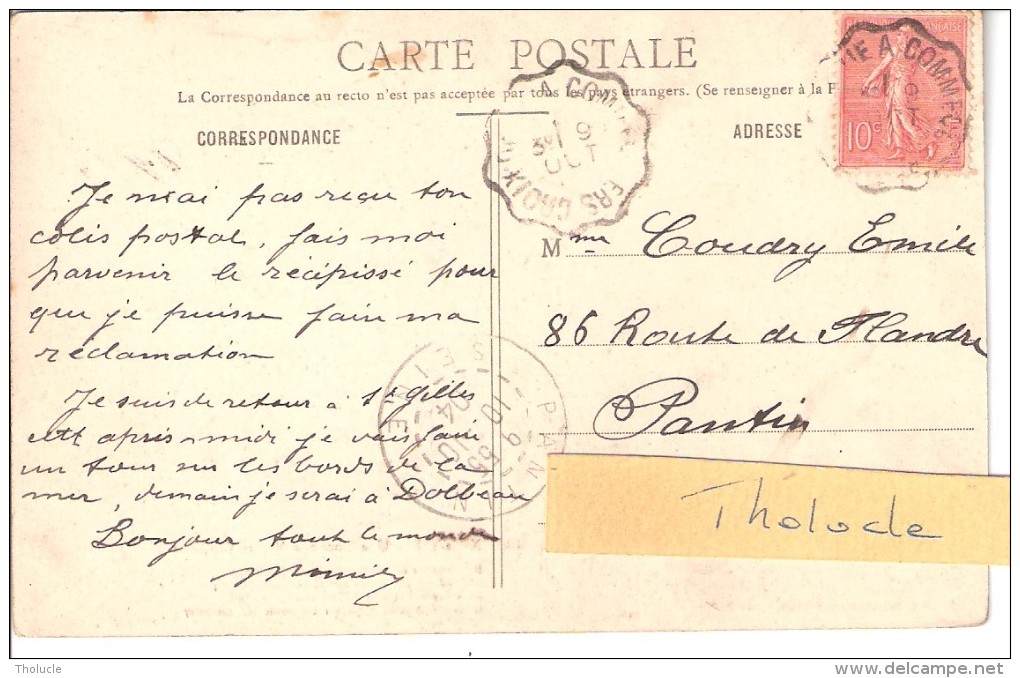 CARTE POSTALE
La Correspondance au recto n'est pas acceptée par tous les pays étrangers. (Se renseigner à la
CORRESPONDANCE
ADRESSE
FRANÇAISE
10c
A COMM
9
OCT
ERS CROIX
IE A COMMER
9
Je n'ai pas reçu ton
colis postal, fais moi
parvenir le récipissé pour
que je puisse faire ma
réclamation
Je suis de retour à St Gilles
cett après-midi je vais faire
un tour sur les bords de la
mer, demain je serai à Dolbeau
Bonjour tout le monde
Mimile
Mme Coudry Emile
86 Route de Flandre
Pantin
PANTIN
SEINE
Tholocle
Tholucle
delcampe.net